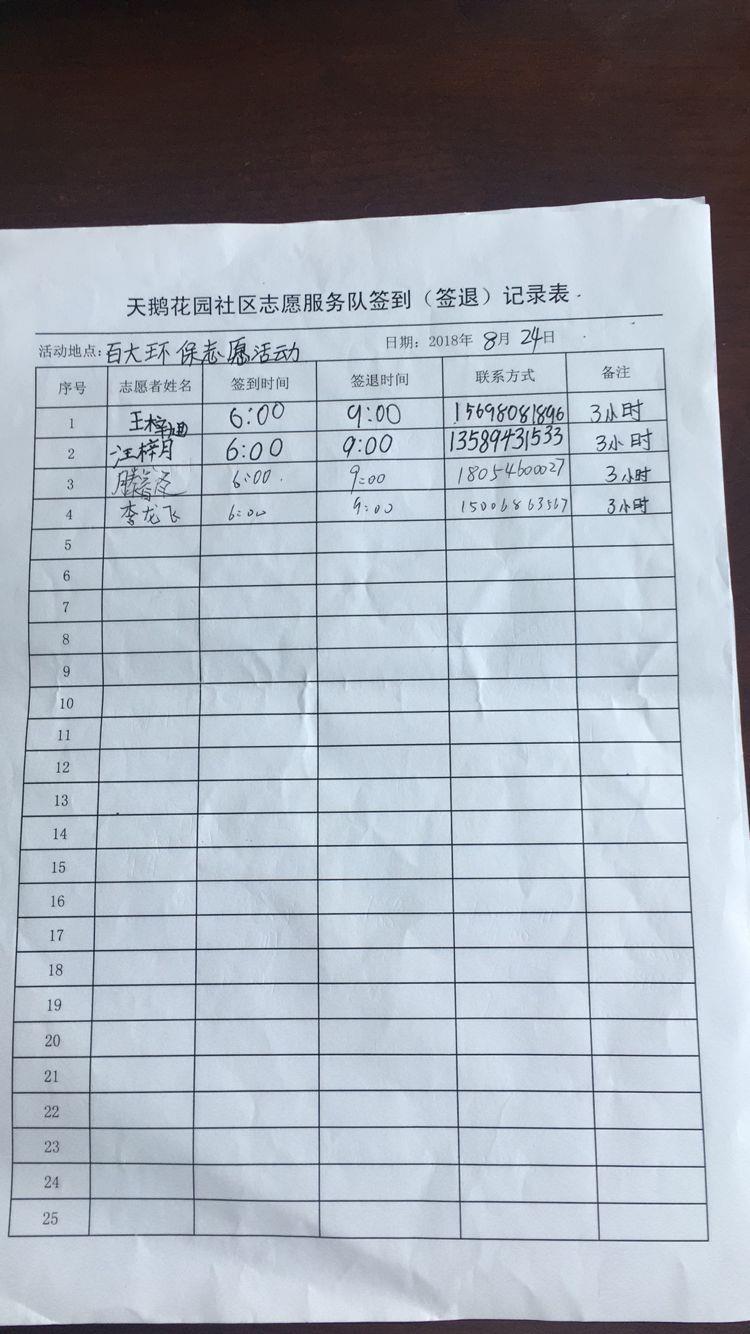 天鹅花园社区志愿服务队签到（签退）记录表
活动地点：百大环保志愿活动 日期：2018年8月24日
序号 志愿者姓名 签到时间 签退时间 联系方式 备注
1 王梓 6:00 9:00 15698081896 3小时
2 汪梓月 6:00 9:00 13589431533 3小时
3 6:00. 9:00 18054600027 3小时
4 李龙飞 6:00 9:00 15006863567 3小时
5
6
7
8
9
10
11
12
13
14
15
16
17
18
19
20
21
22
23
24
25